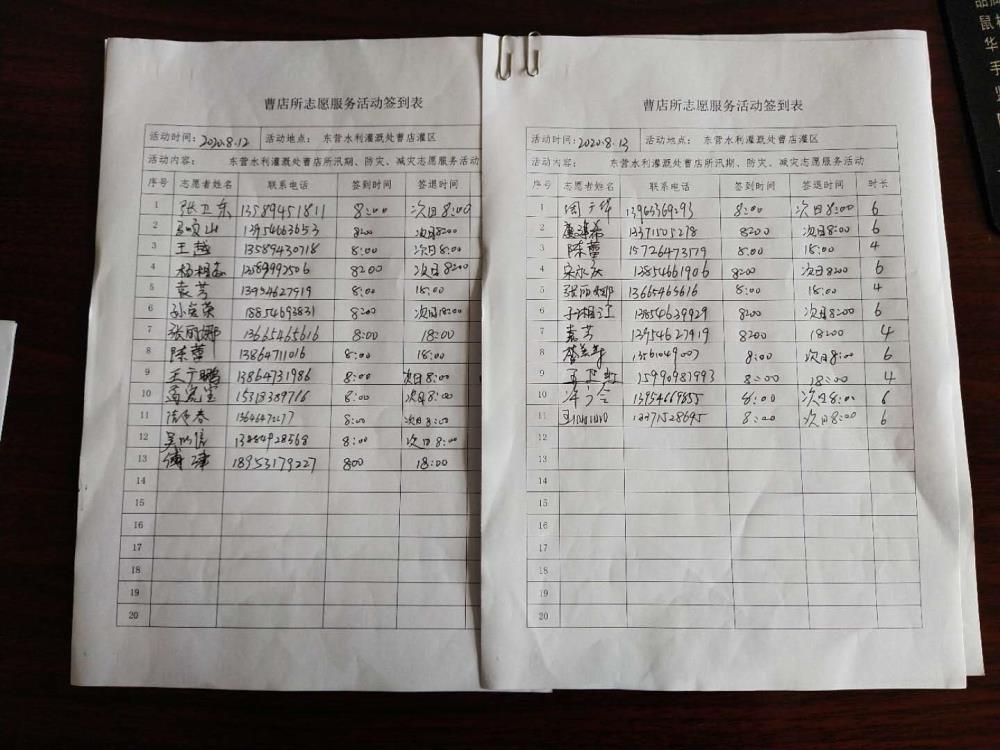 曹店所志愿服务活动签到表
活动时间: 2020.8.12 活动地点: 东营水利灌溉处曹店灌区
活动内容: 东营水利灌溉处曹店所汛期、防灾、减灾志愿服务活动
序号 志愿者姓名 联系电话 签到时间 签退时间
1 张卫东 13589451811 8:00 次日8:00
2 13954663653 8:00 次日8:00
3 王越 13589430718 8:00 次日8:00
4 8:00 次日8:00
5 袁芳 13954627919 8:00 18:00
6 18854693831 8:00 次日8:00
7 张丽娜 13665465616 8:00 18:00
8 陈蕾 13864711016 8:00 18:00
9 王广鹏 13864731986 8:00 次日8:00
10 15318389716 8:00 次日8:00
11 8:00 次日8:00
12 8:00 次日8:00
13 18953179227 800 18:00
14
15
16
17
18
19
20
曹店所志愿服务活动签到表
活动时间: 2020.8.13 活动地点: 东营水利灌溉处曹店灌区
活动内容: 东营水利灌溉处曹店所汛期、防灾、减灾志愿服务活动
序号 志愿者姓名 联系电话 签到时间 签退时间 时长
1 8:00 次日8:00 6
2 13371505278 8:00 次日8:00 6
3 陈蕾 15726473579 8:00 18:00 4
4 13854661906 8:00 次日8:00 6
5 张丽娜 13665465616 8:00 18:00 4
6 13854639929 8:00 次日8:00 6
7 袁芳 13954627919 8:00 18:00 4
8 8:00 次日8:00 6
9 15990987993 8:00 18:00 4
10 13954669855 8:00 次日8:00 6
11 8:00 次日8:00 6
12
13
14
15
16
17
18
19
20